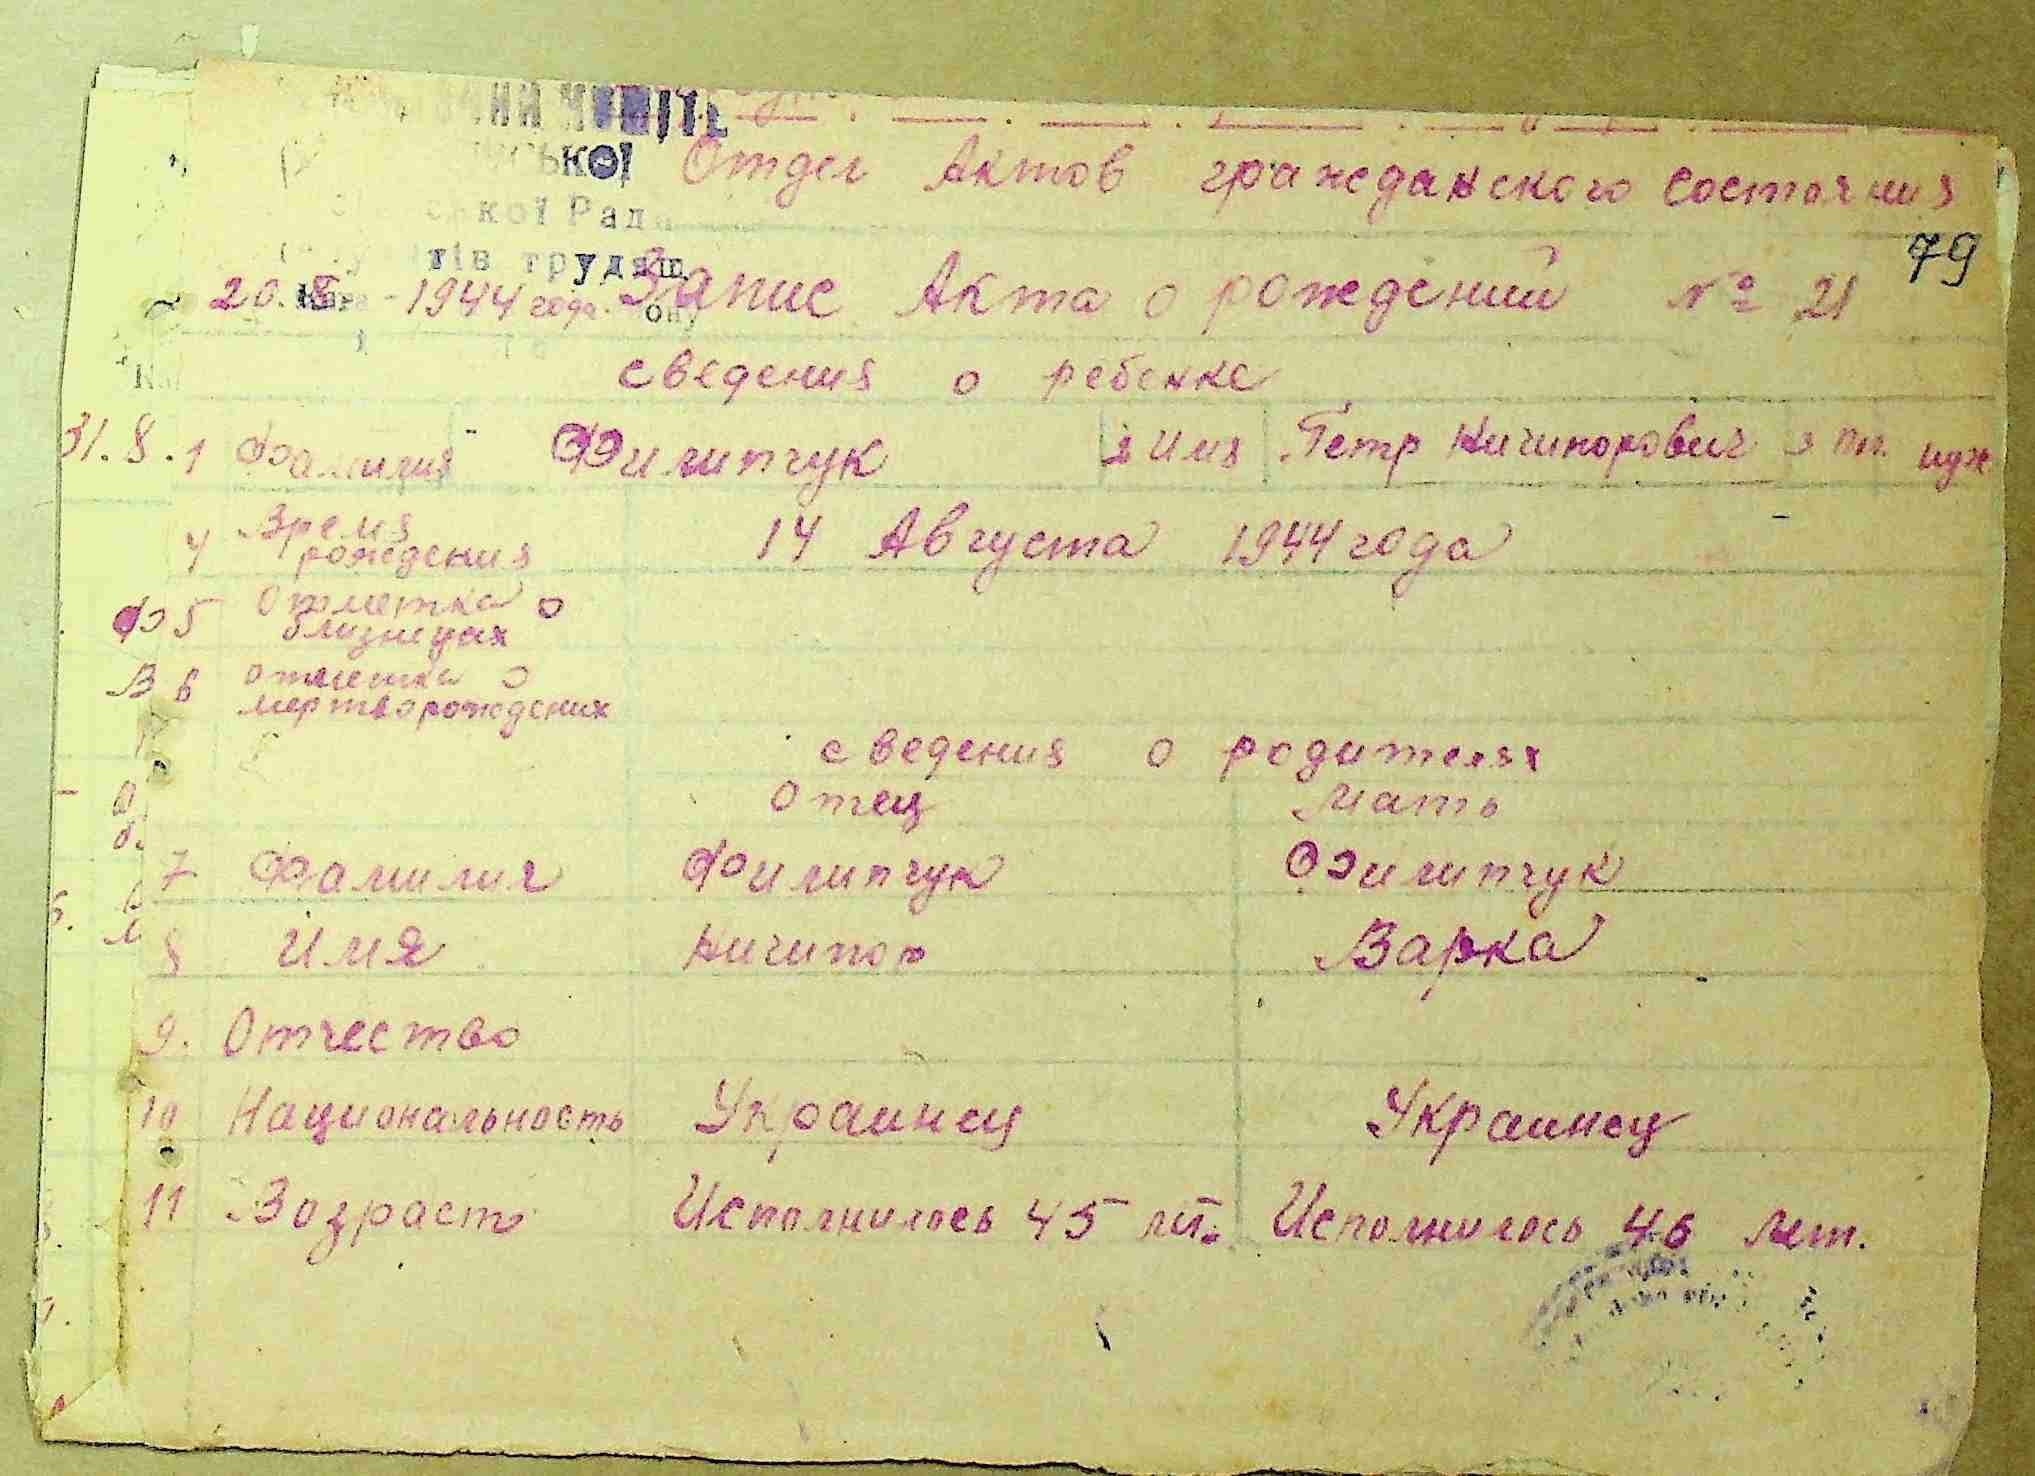 КОМІТЕТ
ської Рад
тів трудящ
Отдел Актов гражданского состояния
79
20. 8 - 1944 года. Запис Акта о рождений № 21
сведения о ребенке
31.8.
1 Фамилия Филипчук 2 Имя Петр Ничипорович 3 Пол муж
4 Время рождения 14 Августа 1944 года
5 Отметка о близнецах
6 отметка о мертворождених
сведения о родителях
Отец Мать
7 Фамилия Филипчук Филипчук
8 Имя Ничипор Варка
9. Отчество
10 Национальность Украинец Украинец
11 Возраст Исполнилось 45 лет. Исполнилось 46 лет.